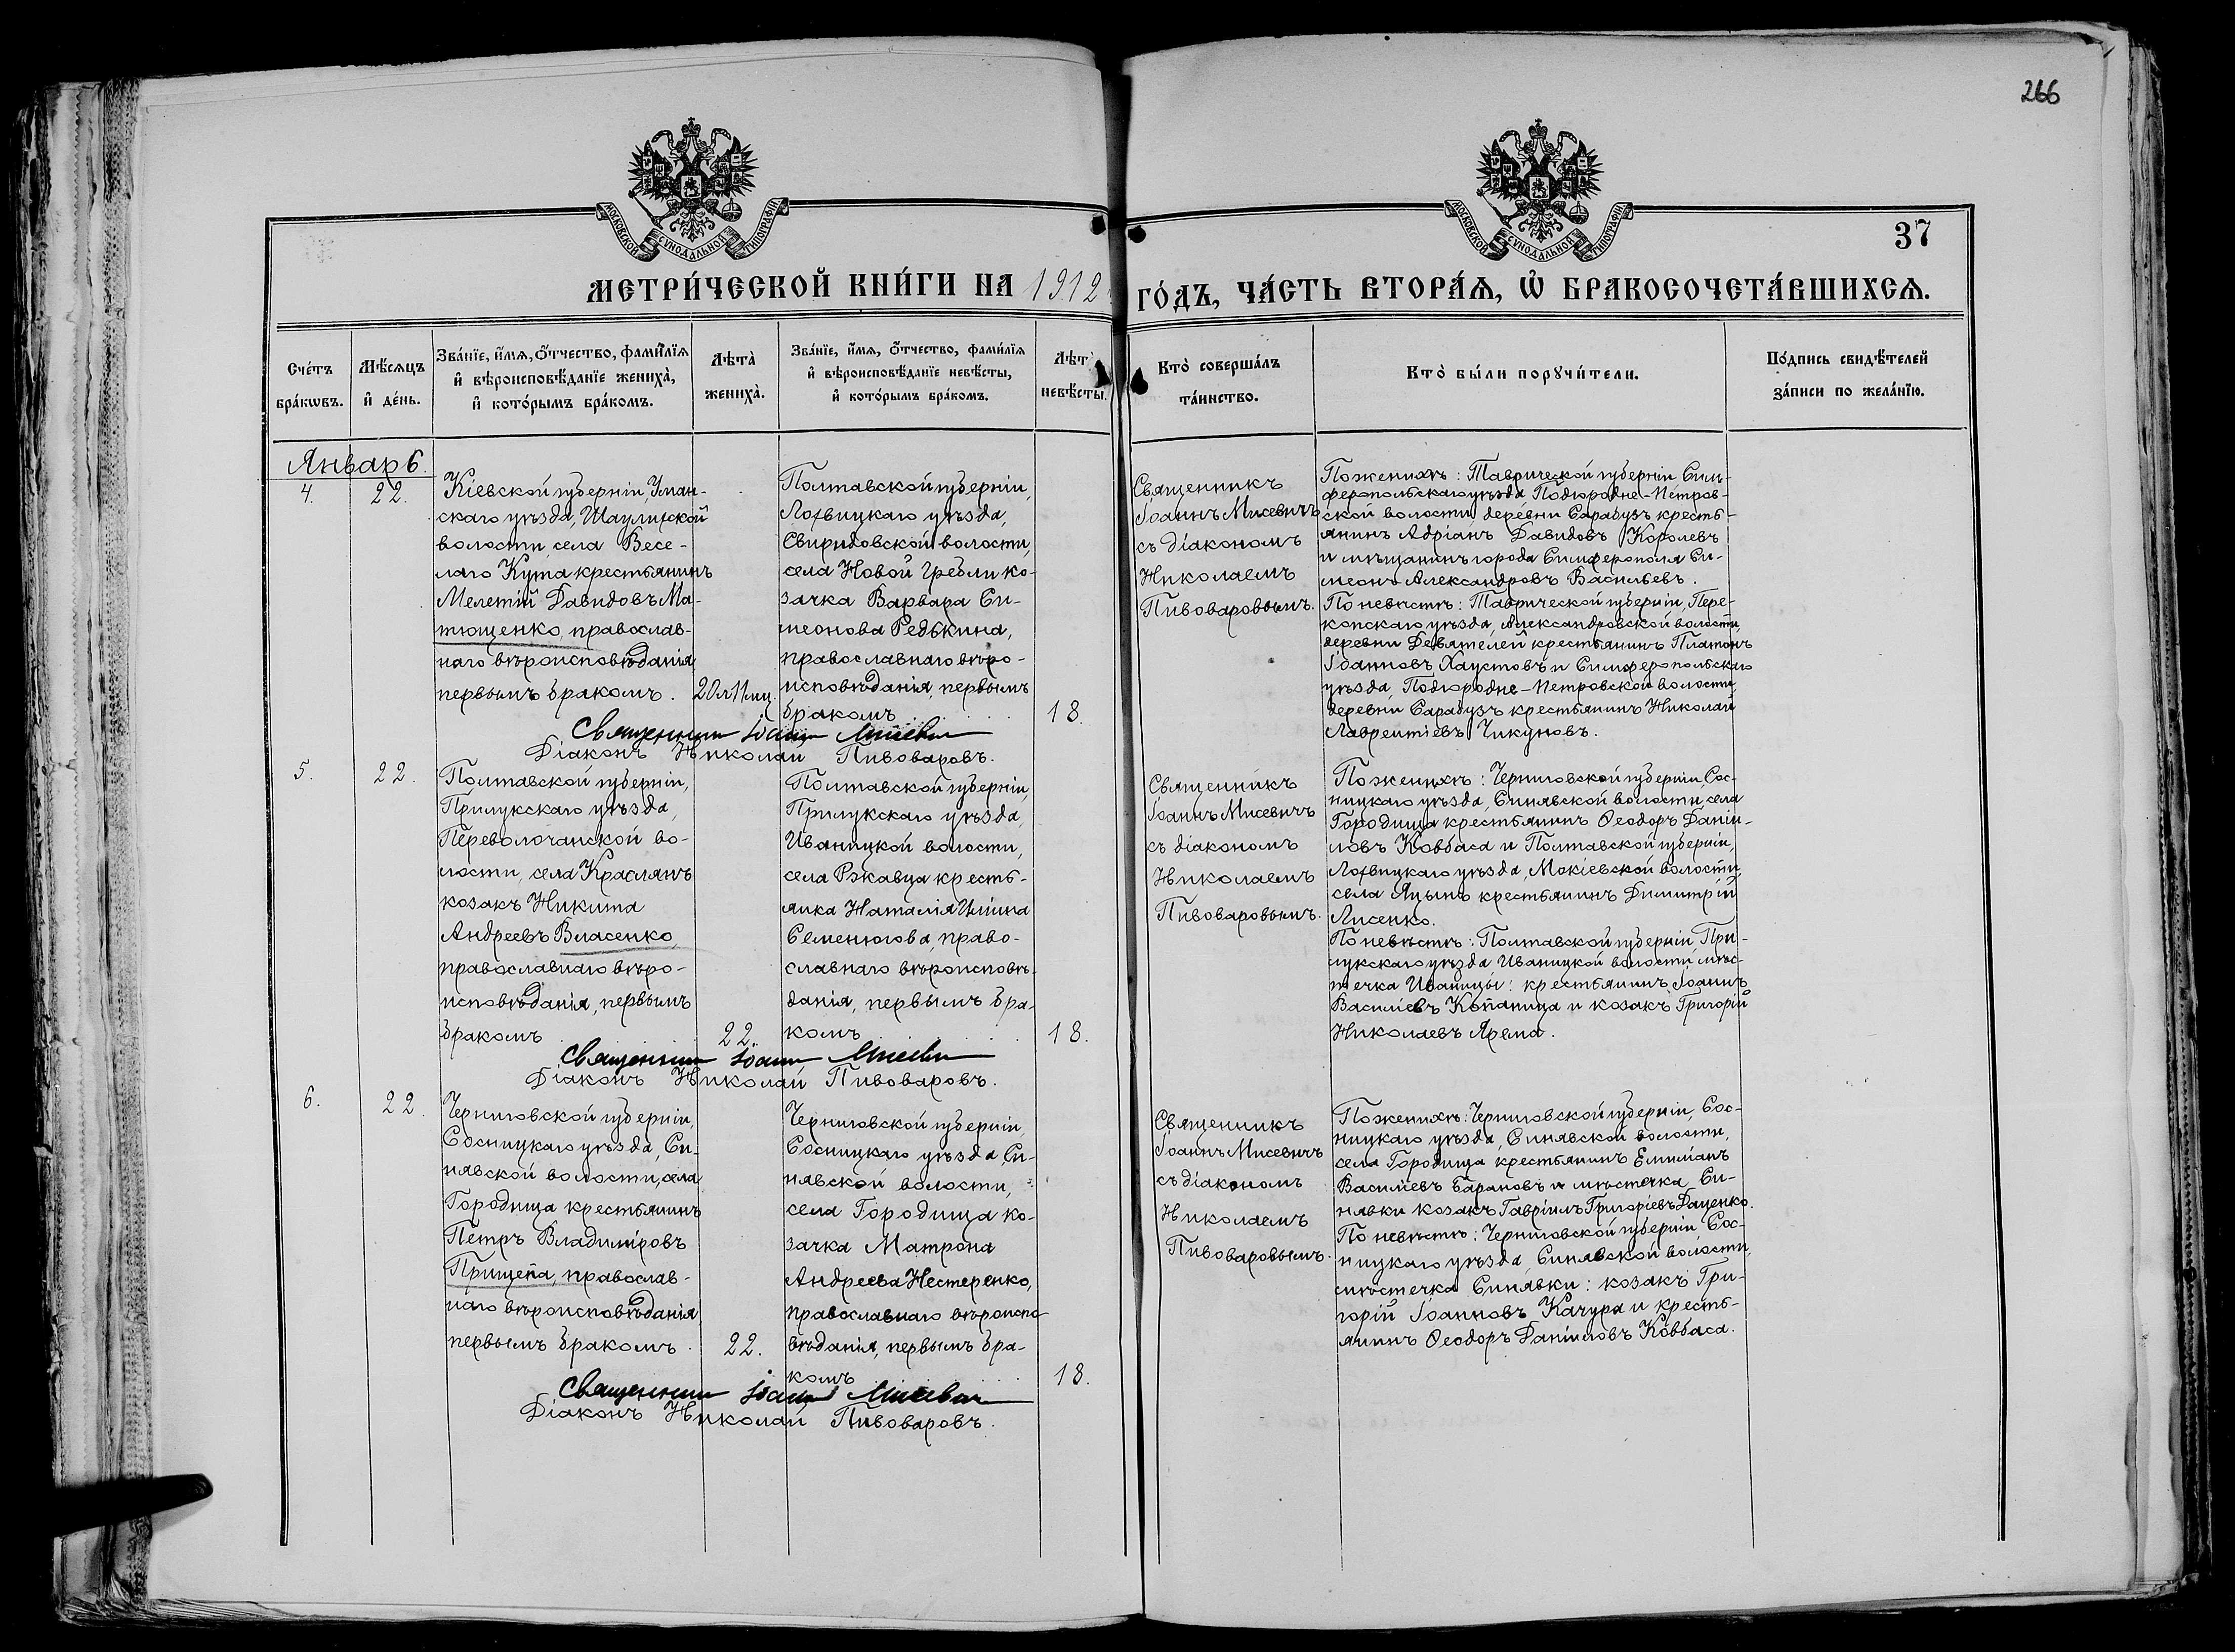 266
МОСКОВСКОЙ СѴНОДАЛЬНОЙ ТИПОГРАФІИ
МОСКОВСКОЙ СѴНОДАЛЬНОЙ ТИПОГРАФІИ
37
МЕТРИ́ЧЕСКОЙ КНИ́ГИ НА 1912 ГО́ДЪ, ЧА́СТЬ ВТОРА́Ѧ, Ѽ БРАКОСОЧЕТА́ВШИХСѦ.
Сче́тъ
бра́кѡвъ.
Мѣ́сѧцъ
и҆ де́нь.
Зва́нїе, и҆́мѧ, ѻ҆́тчество, фами́лїѧ
и҆ вѣроисповѣ́данїе жениха̀,
и҆ кото́рымъ бра́комъ.
Лѣта̀
жениха̀.
Зва́нїе, и҆́мѧ, ѻ҆́тчество, фами́лїѧ
и҆ вѣроисповѣ́данїе невѣ́сты,
и҆ кото́рымъ бра́комъ.
Лѣта̀
невѣ́сты.
Кто̀ соверша́лъ
та́инство.
Кто̀ бы́ли порꙋчи́тели.
По́дпись свидѣ́телей
за́писи по жела́нїю.
Январь.
4.
22.
Кіевской губерніи, Уман-
скаго уѣзда, Шаулихской
волости, села Весе-
лаго Кута крестьянинъ
Мелетій Давидовъ Ма-
тющенко, православ-
наго вѣроисповѣданія
первымъ бракомъ.
20 л 11 мц.
Полтавской губерніи,
Лохвицкаго уѣзда,
Свиридовской волости,
села Новой Гребли ко-
зачка Варвара Си-
меонова Редькина,
православнаго вѣро-
исповѣданія, первымъ
бракомъ
18.
Священникъ Іоаннъ Мисевичъ
Діаконъ Николай Пивоваровъ.
Священникъ
Іоаннъ Мисевичъ
съ діакономъ
Николаемъ
Пивоваровымъ.
По женихѣ: Таврической губерніи Сим-
феропольскаго уѣзда Подгородне-Петров-
ской волости, деревни Сарабузъ кресть-
янинъ Адріанъ Давидовъ Королевъ
и мѣщанинъ города Симферополя Си-
меонъ Александровъ Васильевъ.
По невѣстѣ: Таврической губерніи, Пере-
копскаго уѣзда, Александровской волости,
деревни Девятелей крестьянинъ Платонъ
Іоанновъ Хаустовъ и Симферопольскаго
уѣзда, Подгородне-Петровской волости,
деревни Сарабузъ крестьянинъ Николай
Лаврентіевъ Чикуновъ.
5.
22.
Полтавской губерніи,
Прилукскаго уѣзда,
Переволочанской во-
лости, села Краслянъ
козакъ Никита
Андреевъ Власенко,
православнаго вѣро-
исповѣданія, первымъ
бракомъ
22.
Полтавской губерніи,
Прилукскаго уѣзда,
Иваницкой волости,
села Ржавца кресть-
янка Наталія Иліина
Семенюгова, право-
славнаго вѣроисповѣ-
данія, первымъ бра-
комъ
18.
Священникъ Іоаннъ Мисевичъ
Діаконъ Николай Пивоваровъ.
Священникъ
Іоаннъ Мисевичъ
съ діакономъ
Николаемъ
Пивоваровымъ.
По женихѣ: Черниговской губерніи, Сос-
ницкаго уѣзда, Синявской волости, села
Городища крестьянинъ Ѳеодоръ Даніи-
ловъ Ковбаса и Полтавской губерніи,
Лохвицкаго уѣзда, Мокіевской волости,
села Яцынъ крестьянинъ Димитрій
Лисенко.
По невѣстѣ: Полтавской губерніи, При-
лукскаго уѣзда Иваницкой волости мѣс-
течка Иваницы: крестьянинъ Іоаннъ
Василіевъ Копаница и козакъ Григорій
Николаевъ Ярема.
6.
22.
Черниговской губерніи,
Сосницкаго уѣзда, Си-
нявской волости, села
Городища крестьянинъ
Петръ Владиміровъ
Прищепа, православ-
наго вѣроисповѣданія
первымъ бракомъ.
22.
Черниговской губерніи,
Сосницкаго уѣзда, Си-
нявской волости,
села Городища ко-
зачка Матрона
Андреева Нестеренко,
православнаго вѣроиспо-
вѣданія, первымъ бра-
комъ
18.
Священникъ Іоаннъ Мисевичъ
Діаконъ Николай Пивоваровъ.
Священникъ
Іоаннъ Мисевичъ
съ діакономъ
Николаемъ
Пивоваровымъ.
По женихѣ: Черниговской губерніи, Сос-
ницкаго уѣзда, Синявской волости,
села Городища крестьянинъ Емиліанъ
Василіевъ Барановъ и мѣстечка Си-
нявки козакъ Гавріилъ Григоріевъ Даценко.
По невѣстѣ: Черниговской губерніи, Сос-
ницкаго уѣзда, Синявской волости,
мѣстечка Синявки: козакъ Гри-
горій Іоанновъ Качура и кресть-
янинъ Ѳеодоръ Даніиловъ Ковбаса.